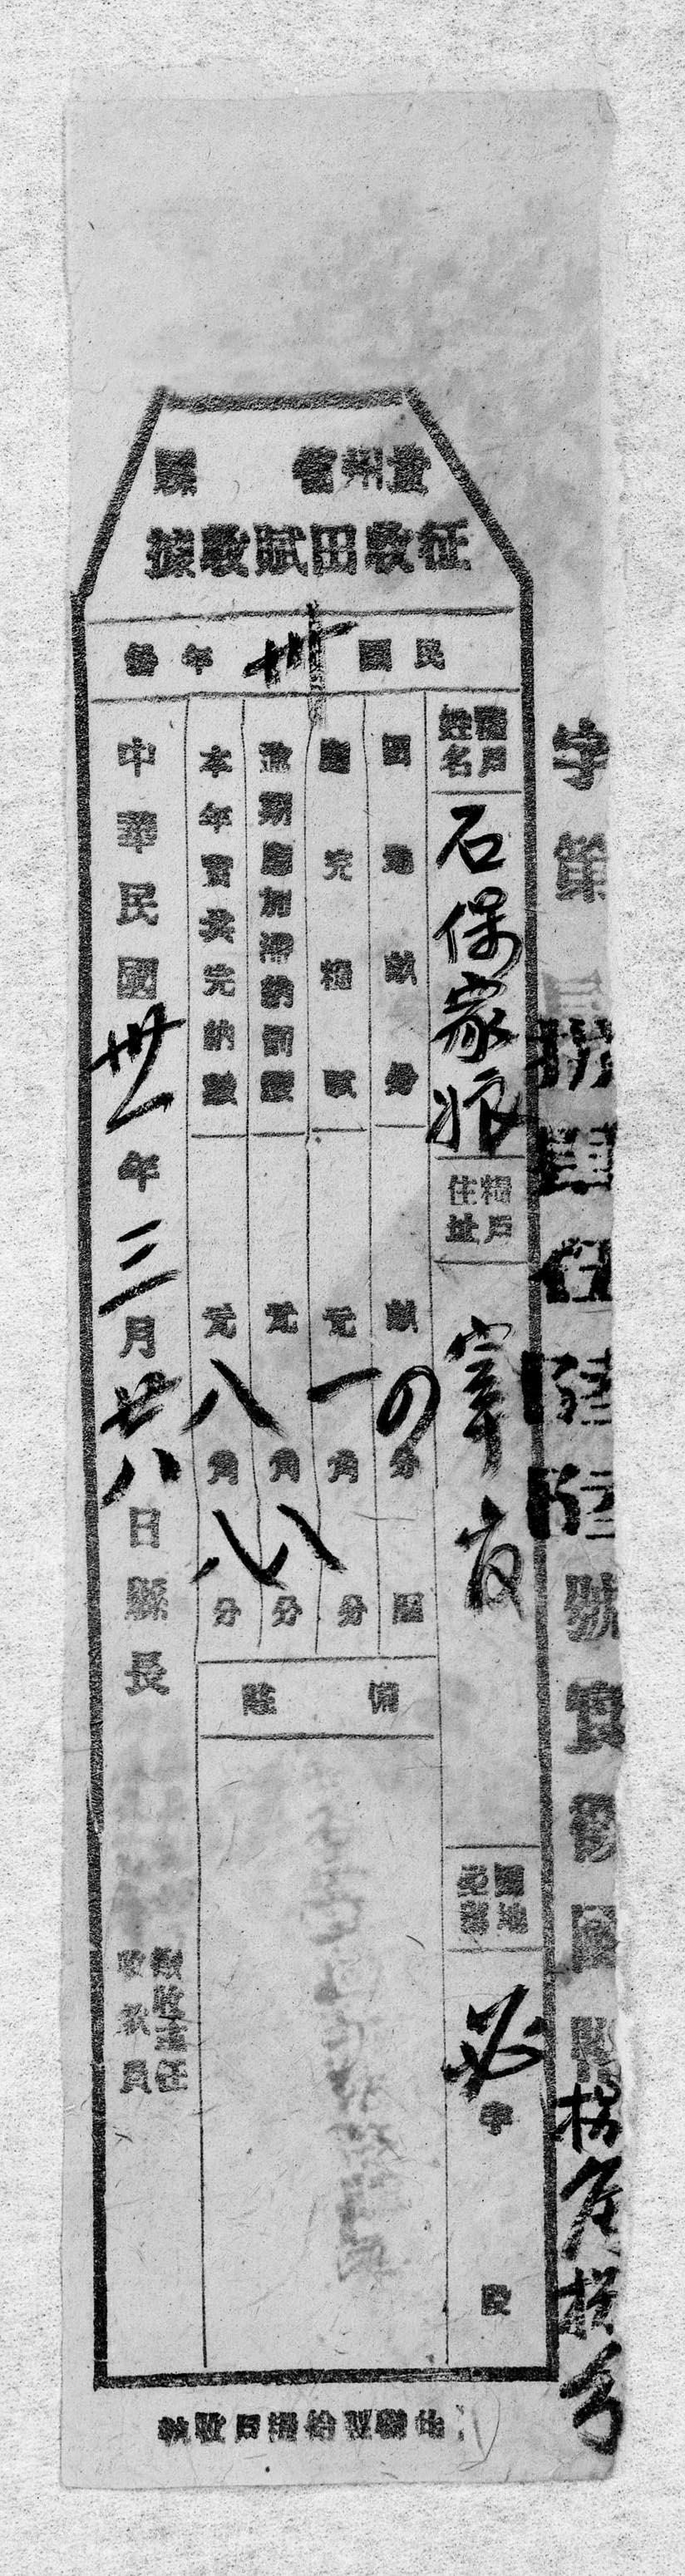 貴州省 縣
征收田賦收據
民國卅年份
字第
捌肆伍陸陸
號實徵國幣
捌角捌分
糧戶姓名
石保家娘
糧戶住址
宰
字
段
田地畝分
畝
の
分
厘
應完糧賦
元
一
角
八
分
逾期應加滯納罰鍰
元
角
分
本年實共完納數
元
八
角
八
分
備註
中華民國卅一年三月廿八日縣長
徵收主任
收款員
此聯發給糧戶收執